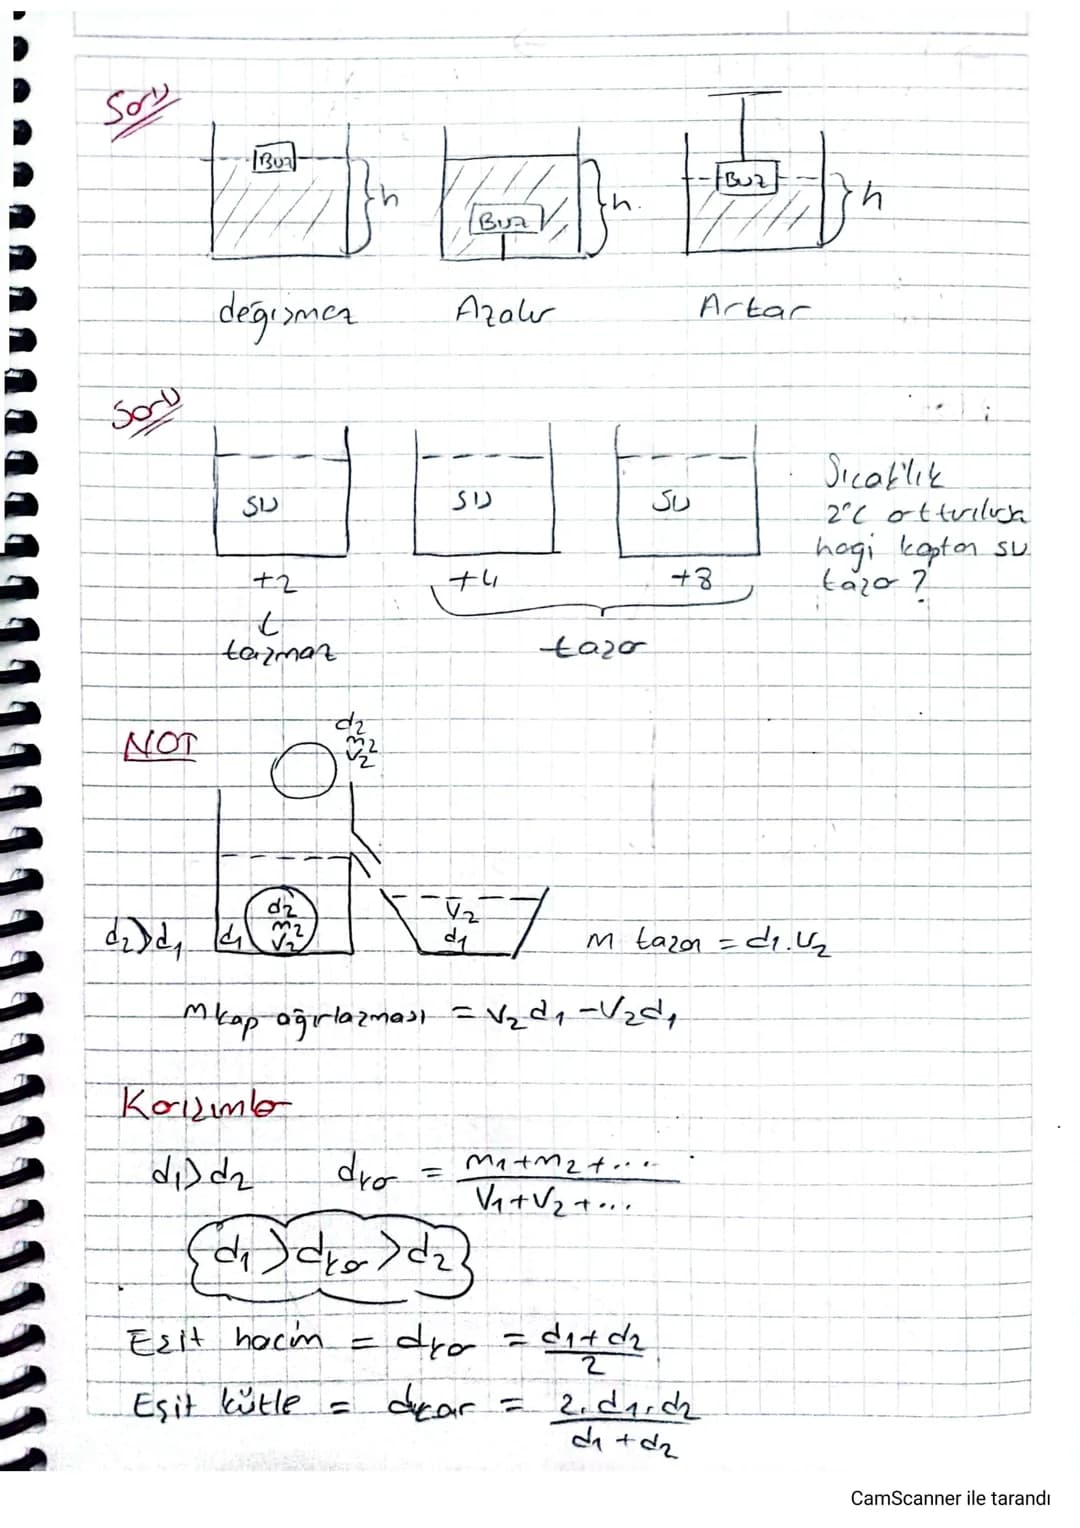 Soru
Buz Buz Buz
h h. h
değişmez Azalır Artar
Soru
su su su
+2 +4 +8
Sıcaklık
2°C arttırılırsa
hagi kaptan su
taşar ?
taşmaz taşar
NOT
d2
m2
v2
d2
m2
v2
d2>d1 d1
V2
d1
m taşan = d1.V2
mkap ağırlaşması = V2d1-V2d1
Karışımlar
d1>d2 dkar = m1+m2+.... / V1+V2+...
d1>dkar>d2
Eşit hacim = dkar = d1+d2 / 2
Eşit kütle = dkar = 2.d1.d2 / d1+d2
CamScanner ile tarandı